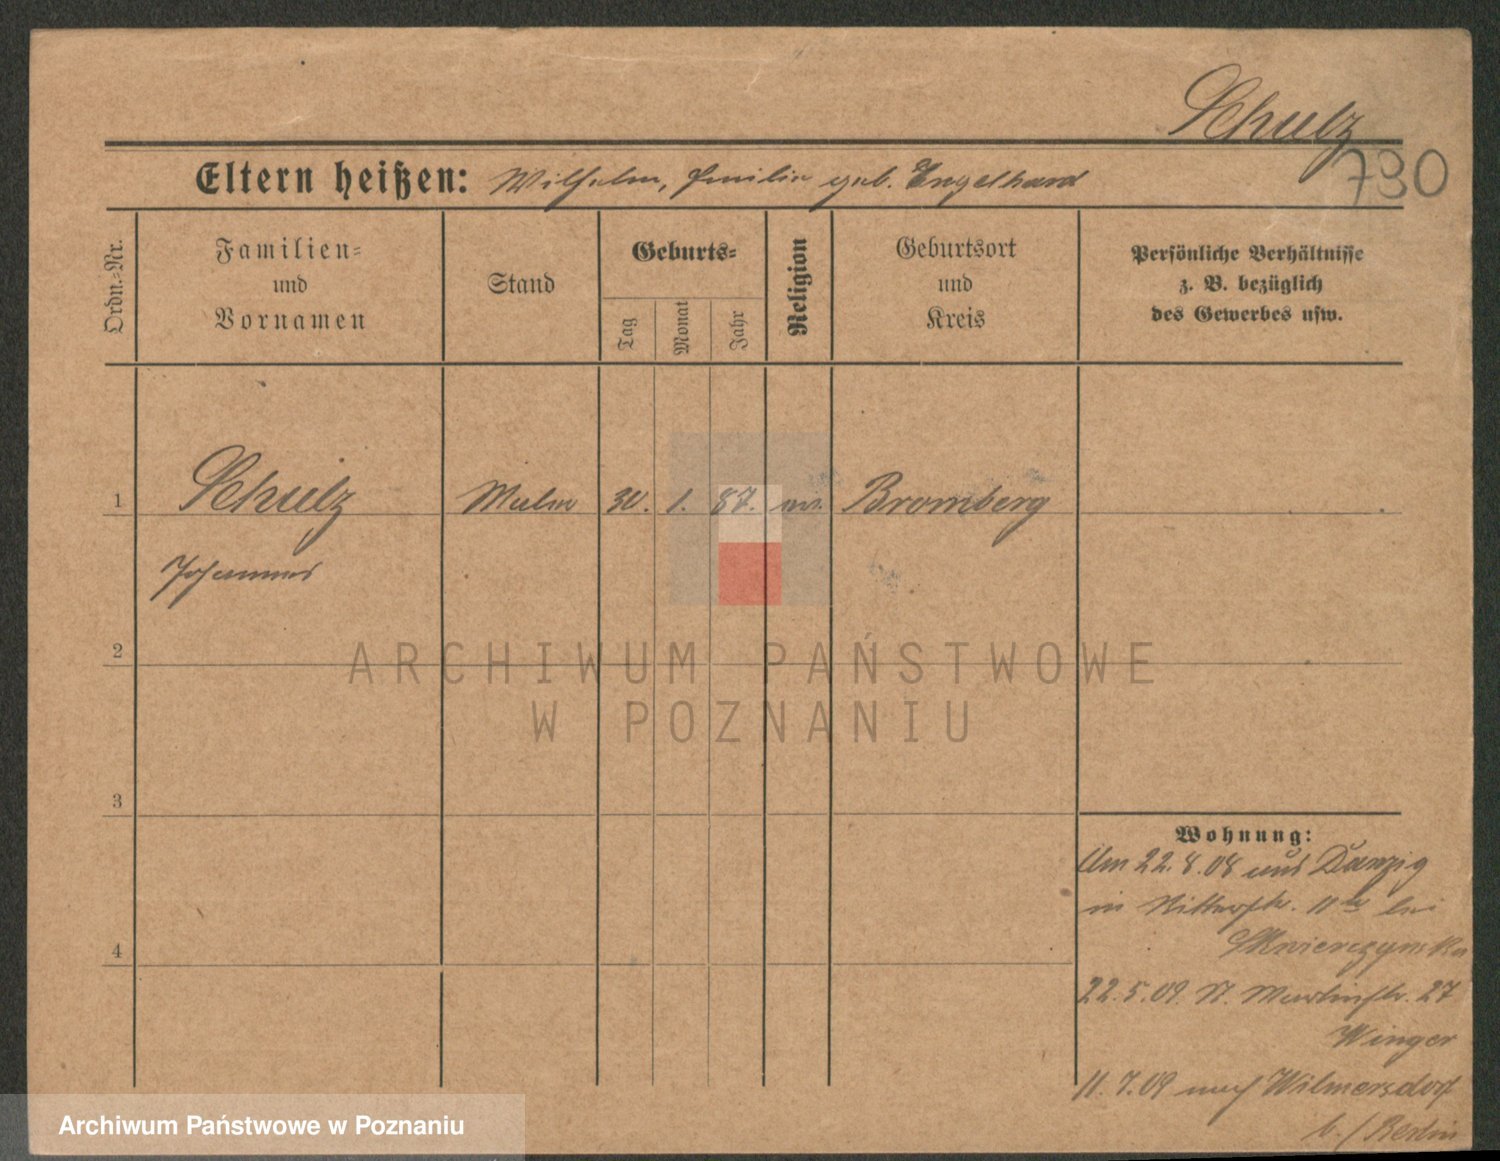 Schulz
790
Eltern heißen: Wilhelm, Emilie geb. Engelhard
Ordn.=Nr.
Familien=
und
Vornamen
Stand
Geburts=
Tag
Monat
Jahr
Religion
Geburtsort
und
Kreis
Persönliche Verhältnisse
z. B. bezüglich
des Gewerbes usw.
1
Schulz
Maler
30. 1. 87. ev. Bromberg
Johannes
2
ARCHIWUM PAŃSTWOWE
W POZNANIU
3
4
Wohnung:
Am 22.8.08 aus Danzig
in Ritterstr. 11 bei
Skwierczynska
22.5.09. St. Martinstr. 27
Winger
11.7.09 nach Wilmersdorf
b./Berlin
Archiwum Państwowe w Poznaniu